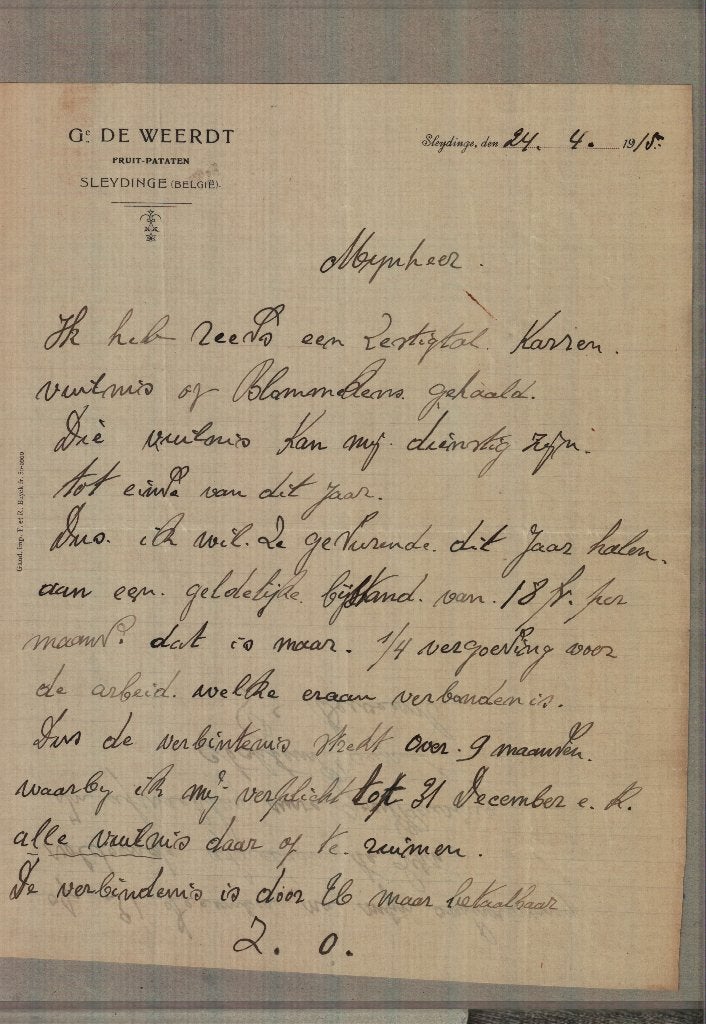 Gᵉ DE WEERDT
FRUIT-PATATEN
SLEYDINGE (BELGIË).
Sleydinge, den 24. 4. 1915.
Mynheer.
Ik heb reeds een zestigtal Karren.
vuilnis of Blommekens gehaald.
Die vuilnis Kan mij dienstig zijn.
tot einde van dit jaar.
Dus. ik wil. Ze gedurende dit jaar halen.
aan een. geldelijke bijstand. van. 18 fr. per
maand. dat is maar. 1/4 vergoeding voor
de arbeid. welke eraan verbonden is.
Dus de verbintenis strekt over. 9 maanden.
waarby ik mij verplicht tot 31 December e. k.
alle vuilnis daar op te. ruimen.
De verbindenis is door U maar betaalbaar
Z. O.
Gand, Imp. F. et R. Buyck fr.